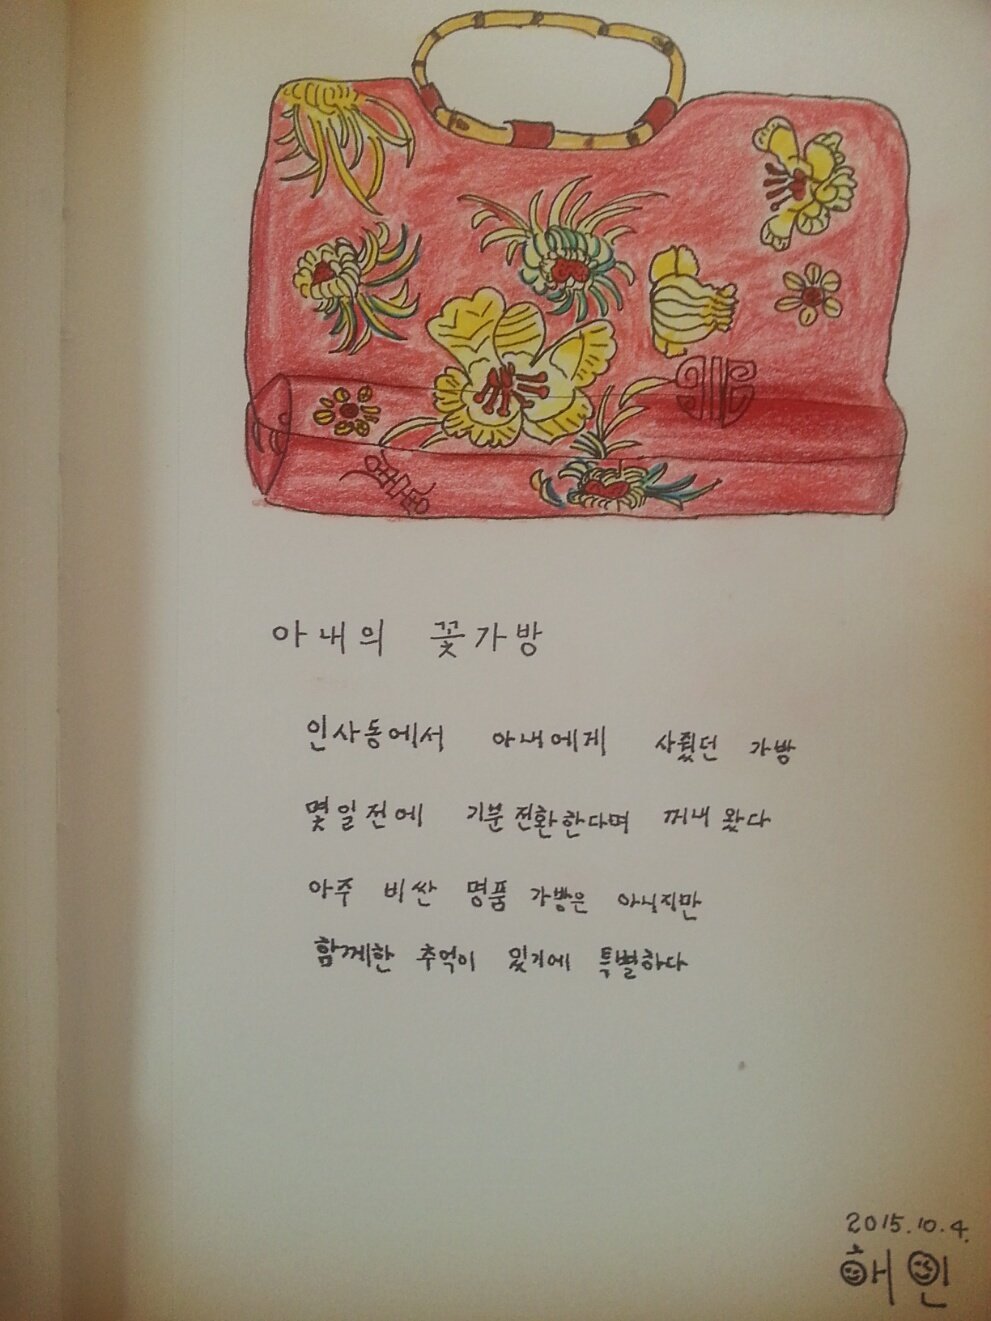 아내의 꽃가방
인사동에서 아내에게 사줬던 가방
몇일전에 기분전환한다며 꺼내 왔다
아주 비싼 명품 가방은 아니지만
함께한 추억이 있기에 특별하다
2015.10.4.
해인